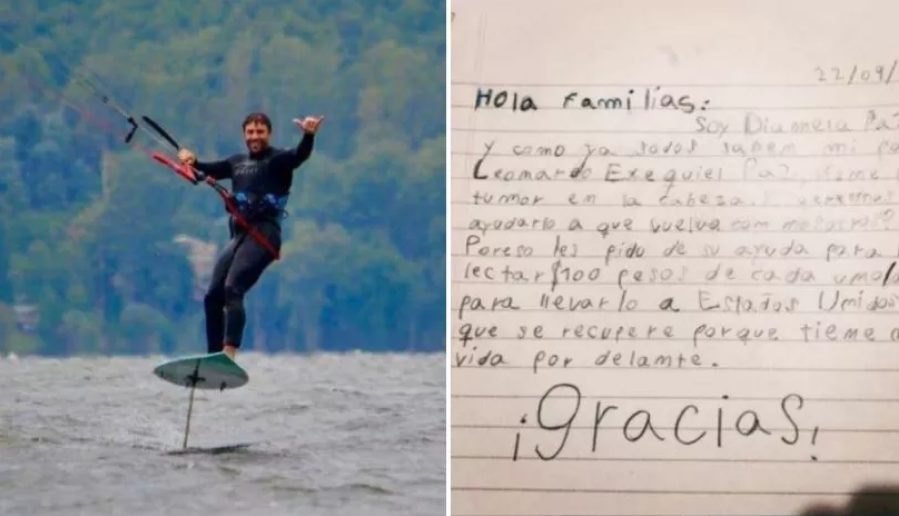 22/09/
Hola Familias:
Soy Diannela Paz
y como ya todos saben mi
Leonardo Exequiel Paz, tiene
tunmor en la cabeza.
ayudarlo a que vuelva con nosotros?
Poreso les pido de su ayuda para
lectar $100 pesos de cada uno/
para llevarlo a Estados Unidos
que se recupere porque tiene
vida por delante.
¡Gracias!